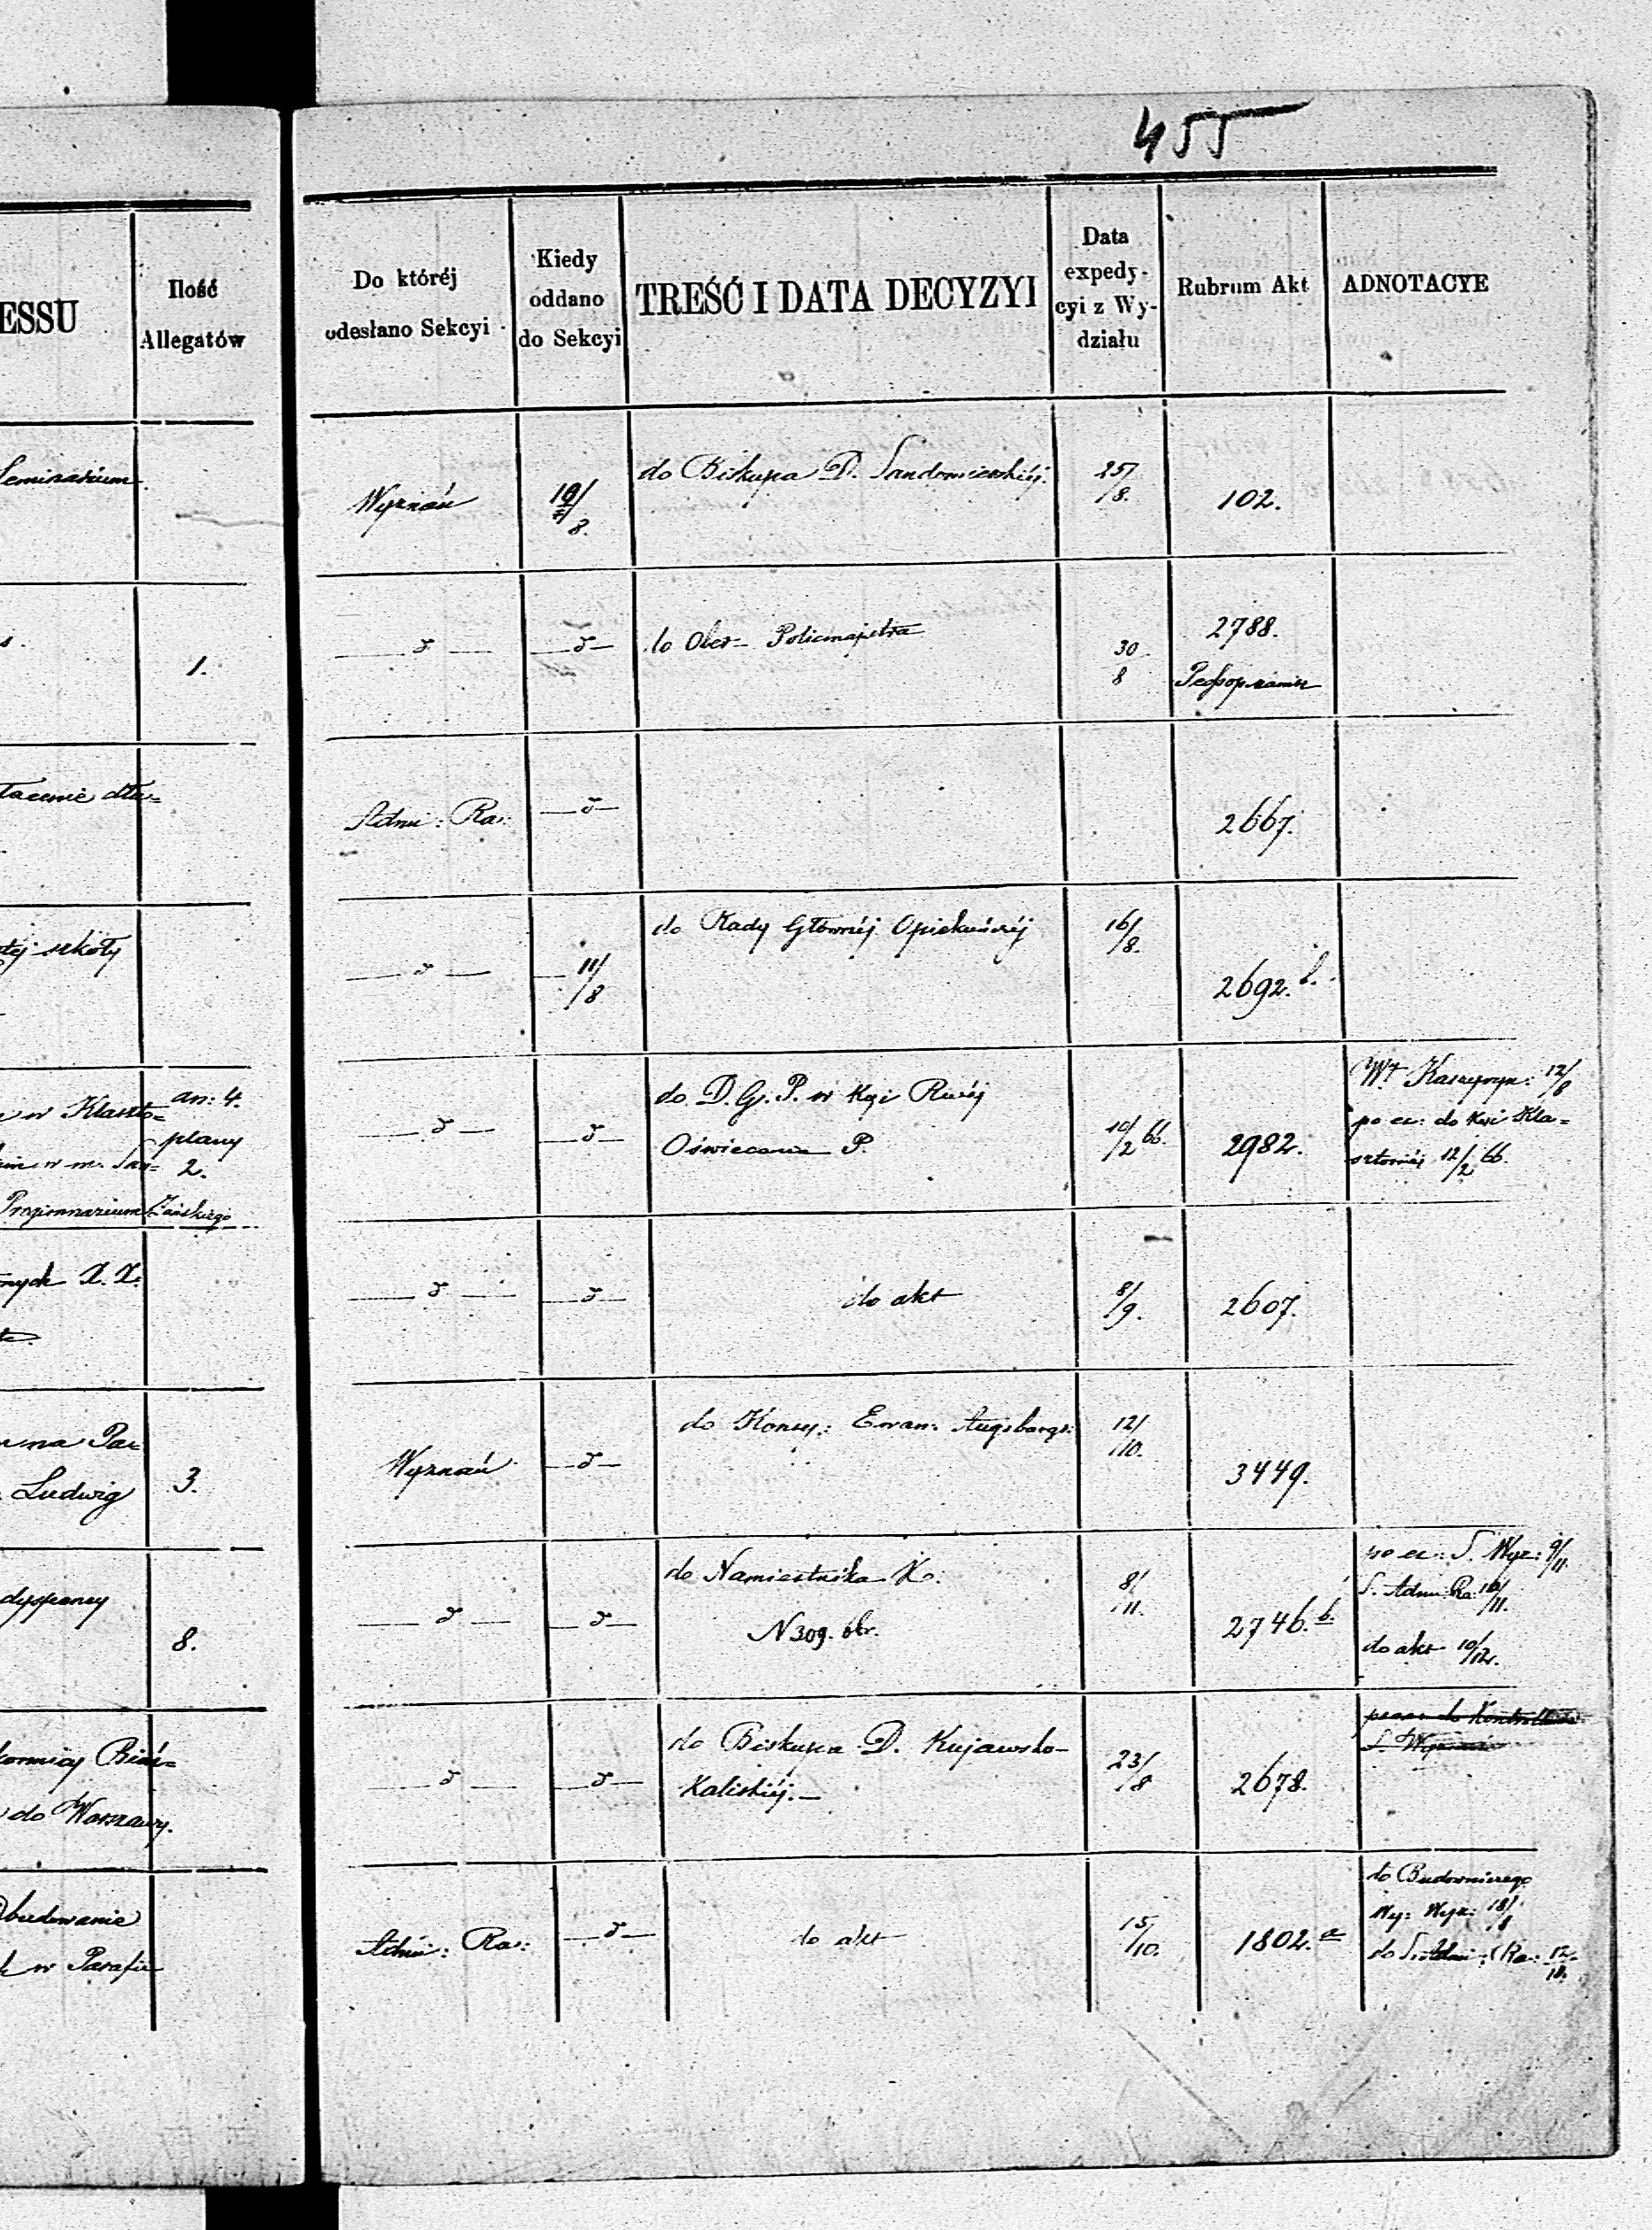 455
ESSU
Ilość
Allegatów
Do któréj
odesłano Sekcyi
Kiedy
oddano
do Sekcyi
TREŚĆ I DATA DECYZYI
Data
expedy-
cyi z Wy-
działu
Rubrum Akt
ADNOTACYE
Seminarium.
Wyznań
10/8.
do Biskupa D. Sandomierskiéj.
25/8.
102.
1.
do Ober- Policmajstra
30/8
2788.
łacenie dłu=
Adm: Ra:
2667.
tej szkoły
11/8
do Rady Głównéj Opiekuńczéj
16/8.
2692. b.
w Klaszto=
an: 4.
plany
2.
do D. G. P. w Kyi Rwéj
Oświecenia P.
10/2 66.
2982.
12/8
po ex: do Kwi Kla=
sztornéj 12/2 66.
nych X. X.
do akt
8/9.
2607.
na Par
Ludwig
3.
Wyznań
do Konsy: Ewan: Augsburgs:
12/10.
3449.
dyspensy
8.
do Namiestnika K.
N 309. obr.
8/11.
2746. b.
po ex: S. Wyz: 9/11.
S. Adm: Ra: 16/11.
do akt 10/12.
do Warszawy.
do Biskupa D. Kujawsko-
Kaliskiéj.-
23/8
2678.
Obudowanie
w Parafii
Adm: Ra:
do akt
15/10.
1802. a
do Budowniczego
Wy: Wyz: 18/8
do S. Adm: Ra: